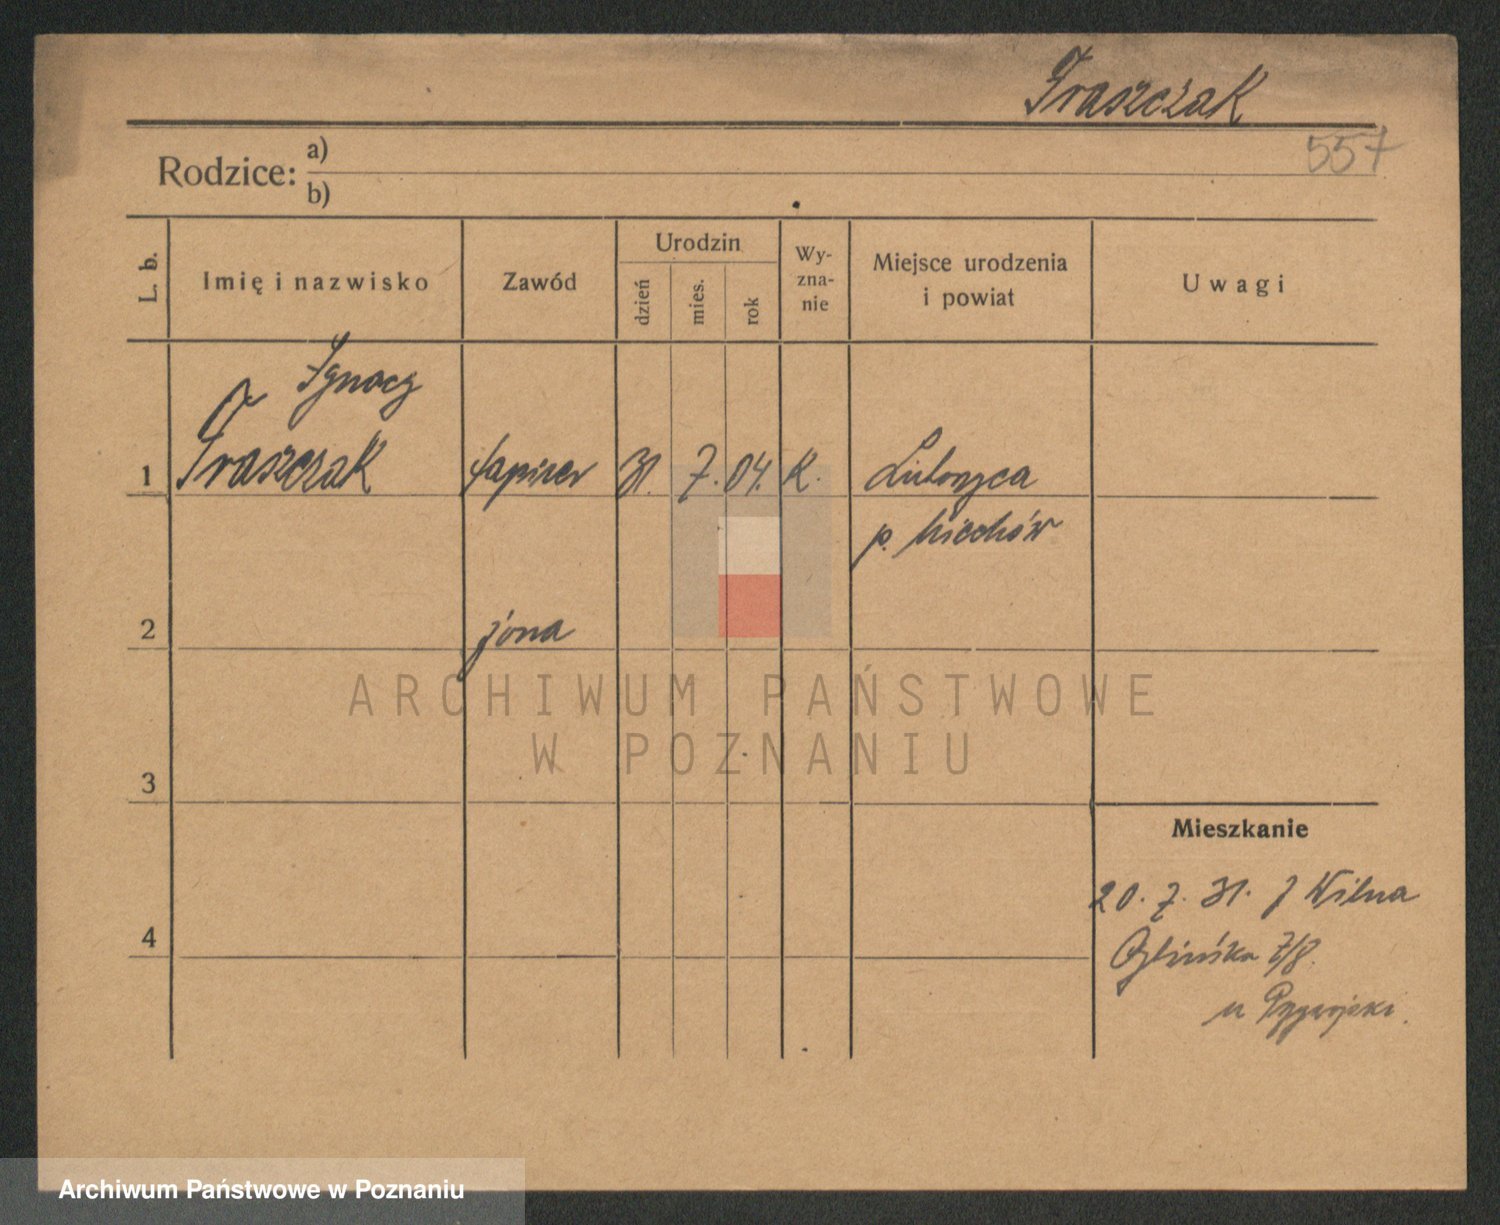 Fraszczak
557
Rodzice: a)
b)
L. b. Imię i nazwisko Zawód Urodzin dzień mies. rok Wy-zna-nie Miejsce urodzenia i powiat Uwagi
Ignacy
1 Fraszczak tapicer 31. 7. 04. K. Luborzyca
p. Miechów
2 żona
3
Mieszkanie
20. 7. 31. z Wilna
4 7/8.
u
ARCHIWUM PAŃSTWOWE
W POZNANIU
Archiwum Państwowe w Poznaniu